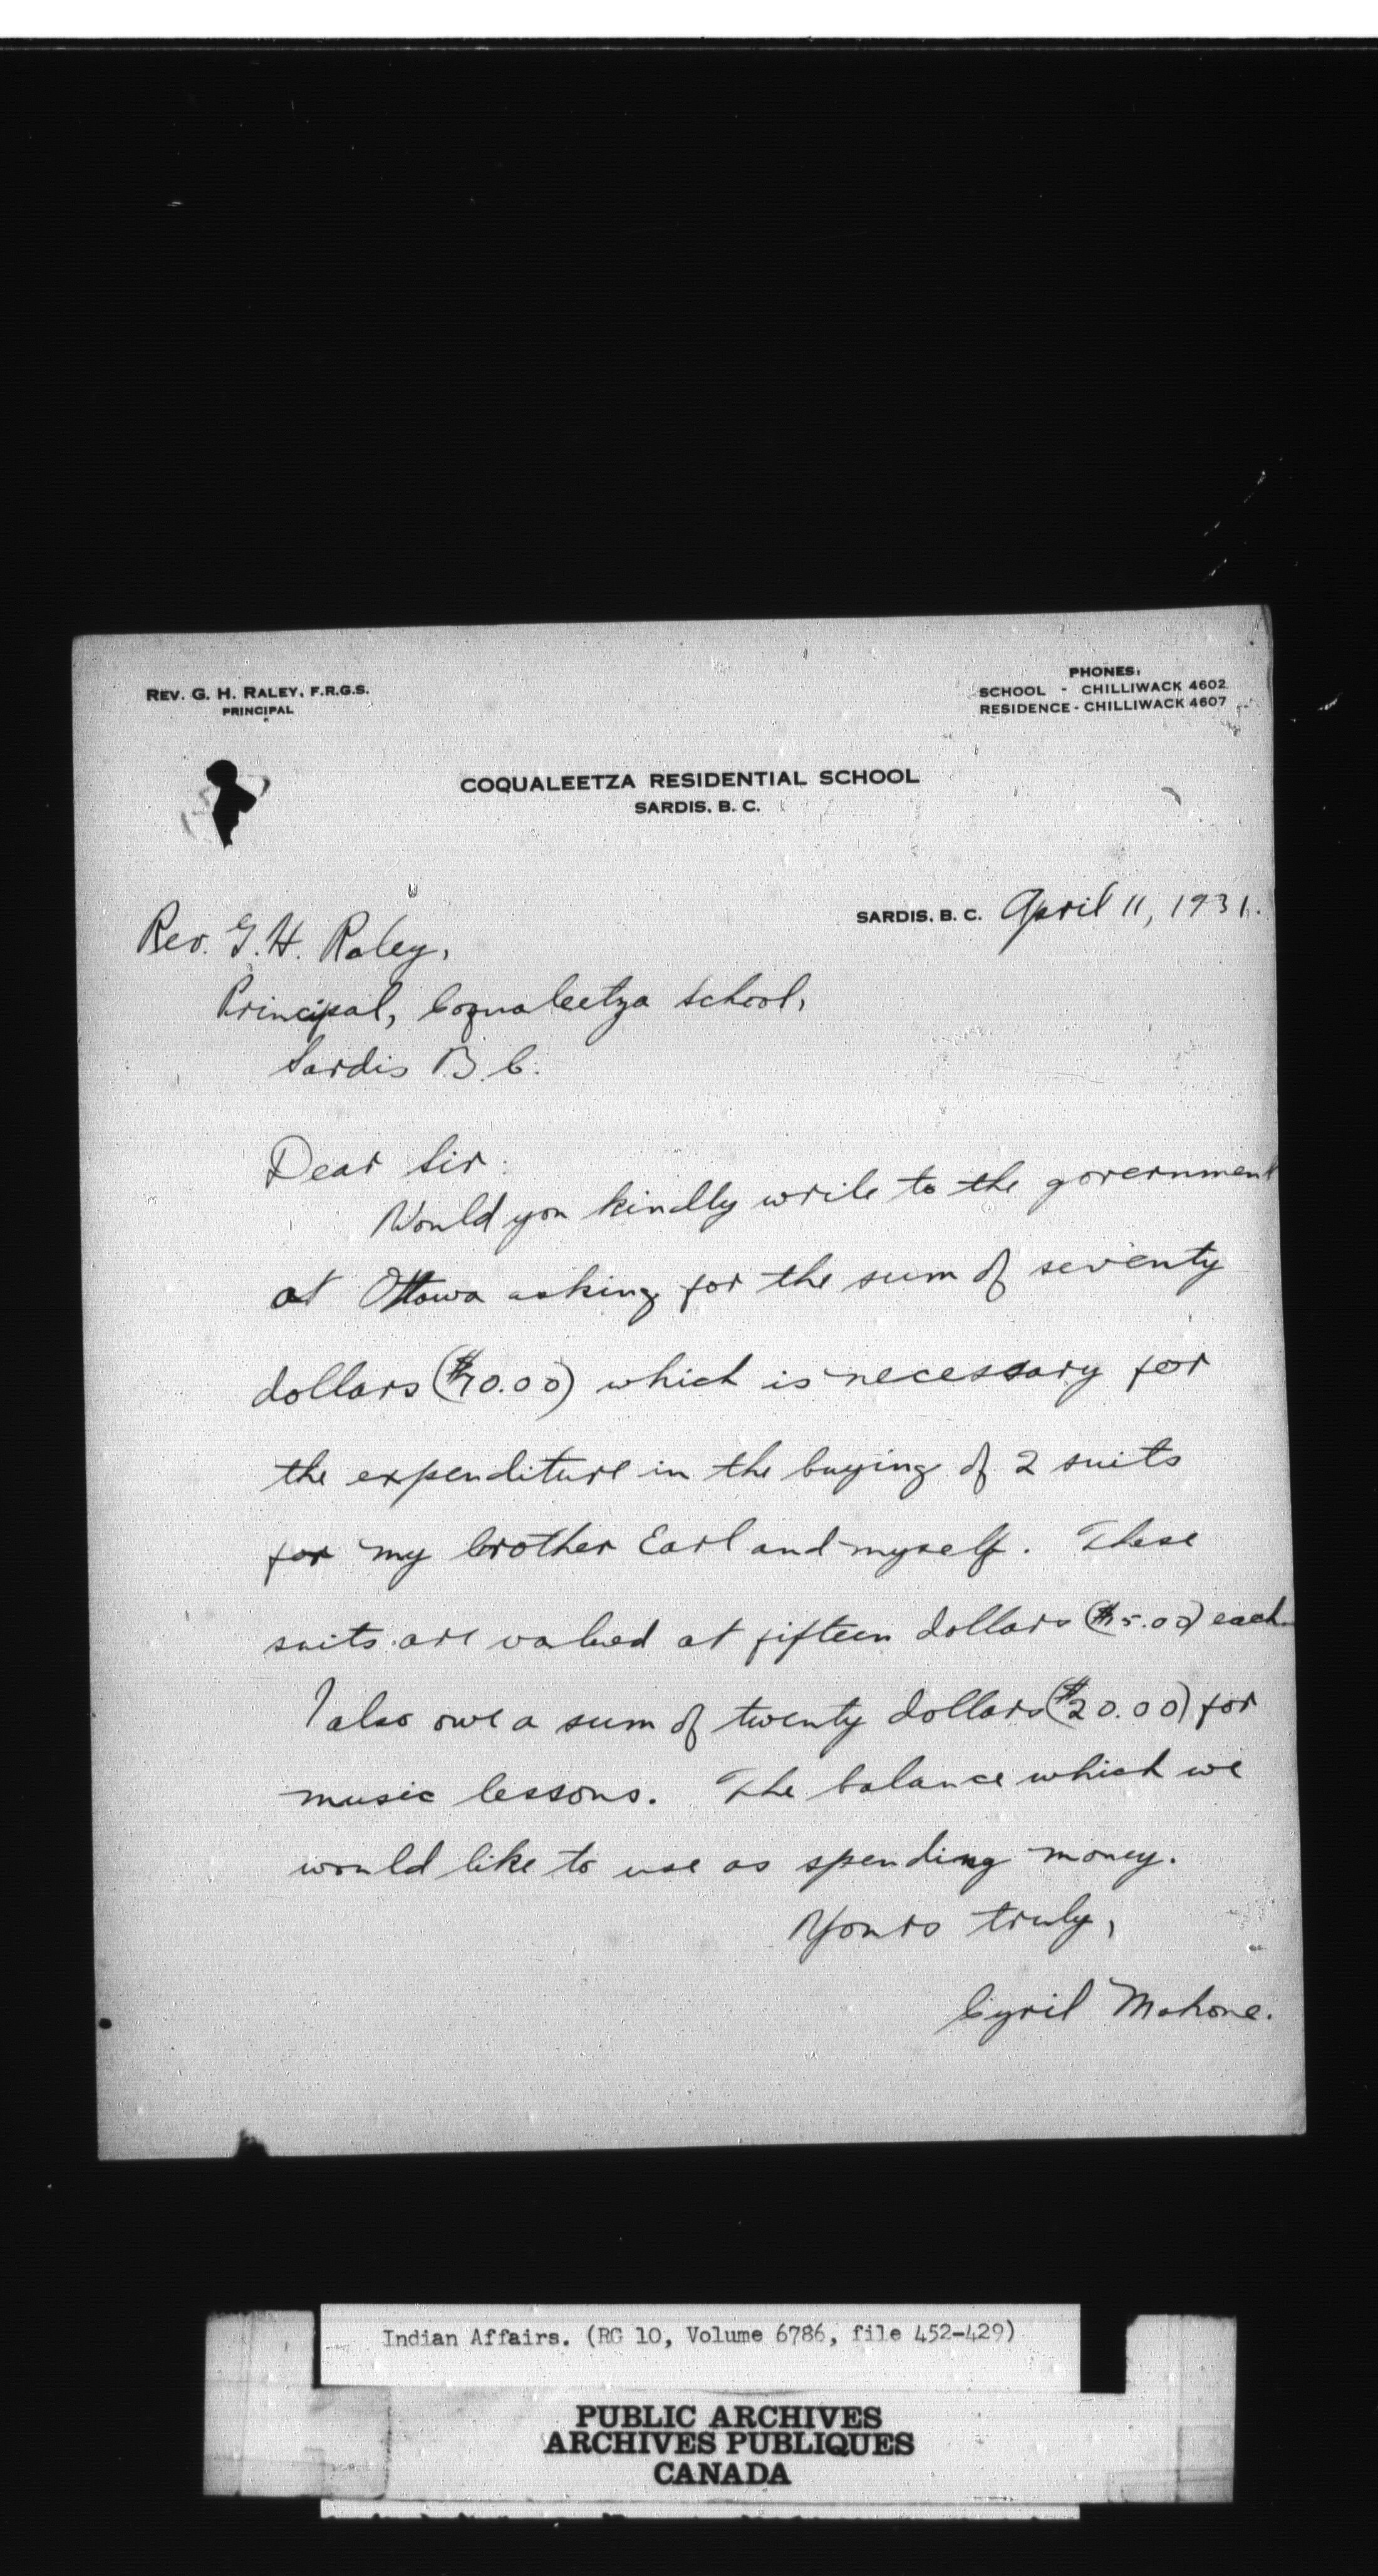 REV. G. H. RALEY, F.R.G.S.
PRINCIPAL
PHONES:
SCHOOL - CHILLIWACK 4602
RESIDENCE - CHILLIWACK 4607
COQUALEETZA RESIDENTIAL SCHOOL
SARDIS, B. C.
SARDIS, B. C. April 11, 1931.
Rev. G. H. Raley,
Principal, Coqualeetza School,
Sardis B.C.
Dear Sir:
Would you kindly write to the government
at Ottawa asking for the sum of seventy
dollars ($70.00) which is necessary for
the expenditure in the buying of 2 suits
for my brother Earl and myself. These
suits are valued at fifteen dollars ($15.00) each.
I also owe a sum of twenty dollars ($20.00) for
music lessons. The balance which we
would like to use as spending money.
Yours truly,
Cyril Mahone.
Indian Affairs. (RG 10, Volume 6786, file 452-429)
PUBLIC ARCHIVES
ARCHIVES PUBLIQUES
CANADA